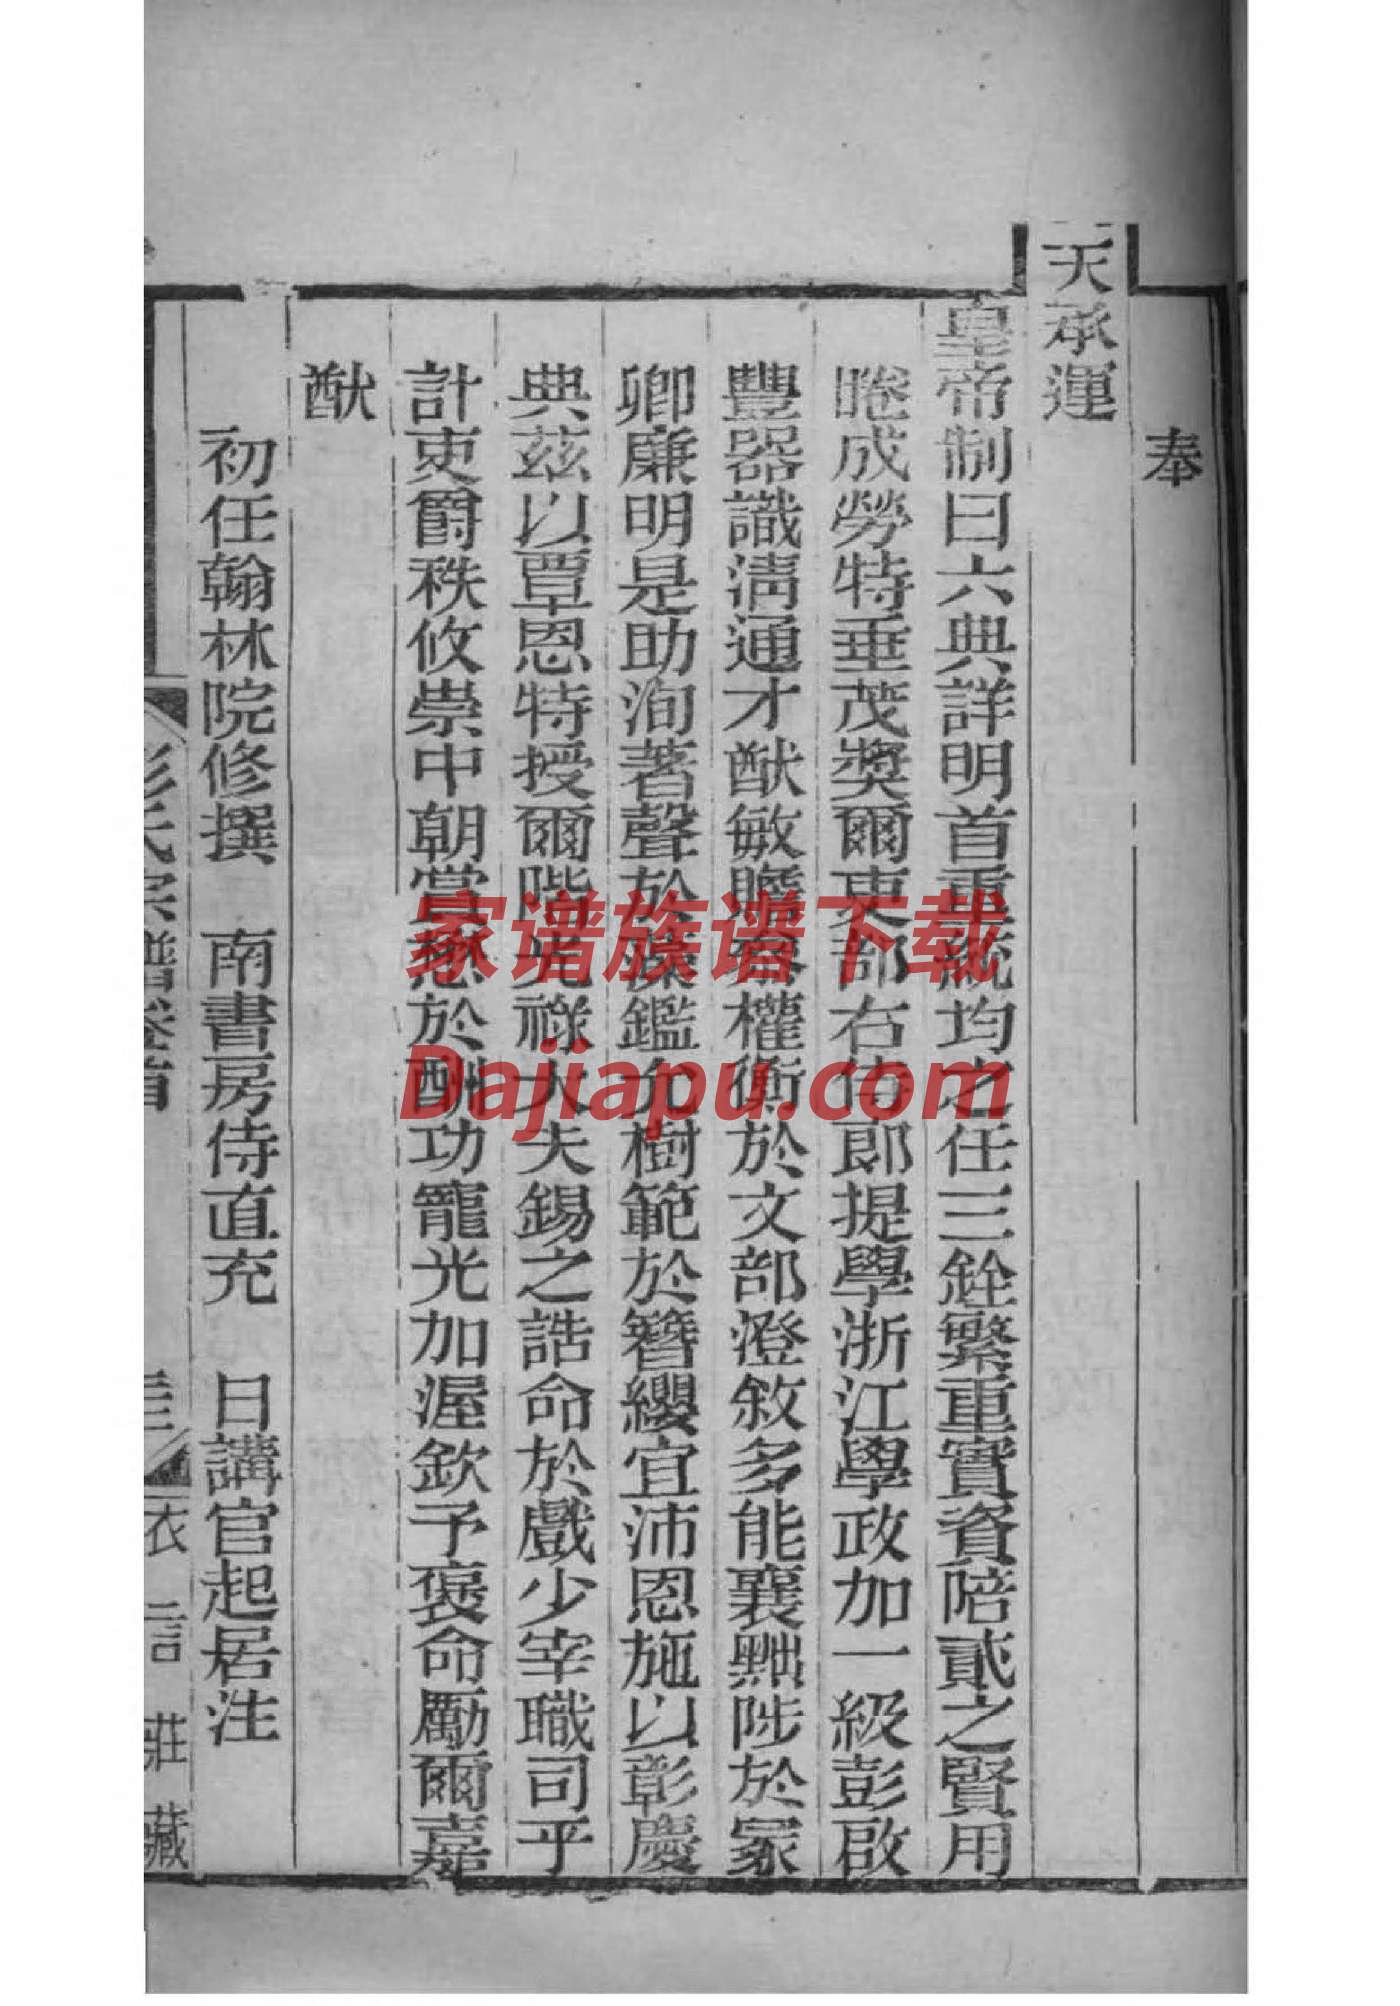 奉
天承運
皇帝制曰六典詳明首重統均之任三銓繁重實資陪貳之賢用
睠成勞特垂茂獎爾吏部右侍郎提學浙江學政加一級彭啟
豐器識淸通才猷敏贍秉權衡於文部澄敘多能襄黜陟於冢
卿廉明是助洵著聲於藻鑑允樹範於簪纓宜沛恩施以彰慶
典茲以覃恩特授爾階光祿大夫錫之誥命於戲少宰職司乎
計吏爵秩攸崇中朝賞懋於酬功寵光加渥欽予褒命勵爾嘉
猷
初任翰林院修撰 南書房侍直充 日講官起居注
彭氏宗譜卷首
衣言莊藏
家谱族谱下载
Dajiapu.com